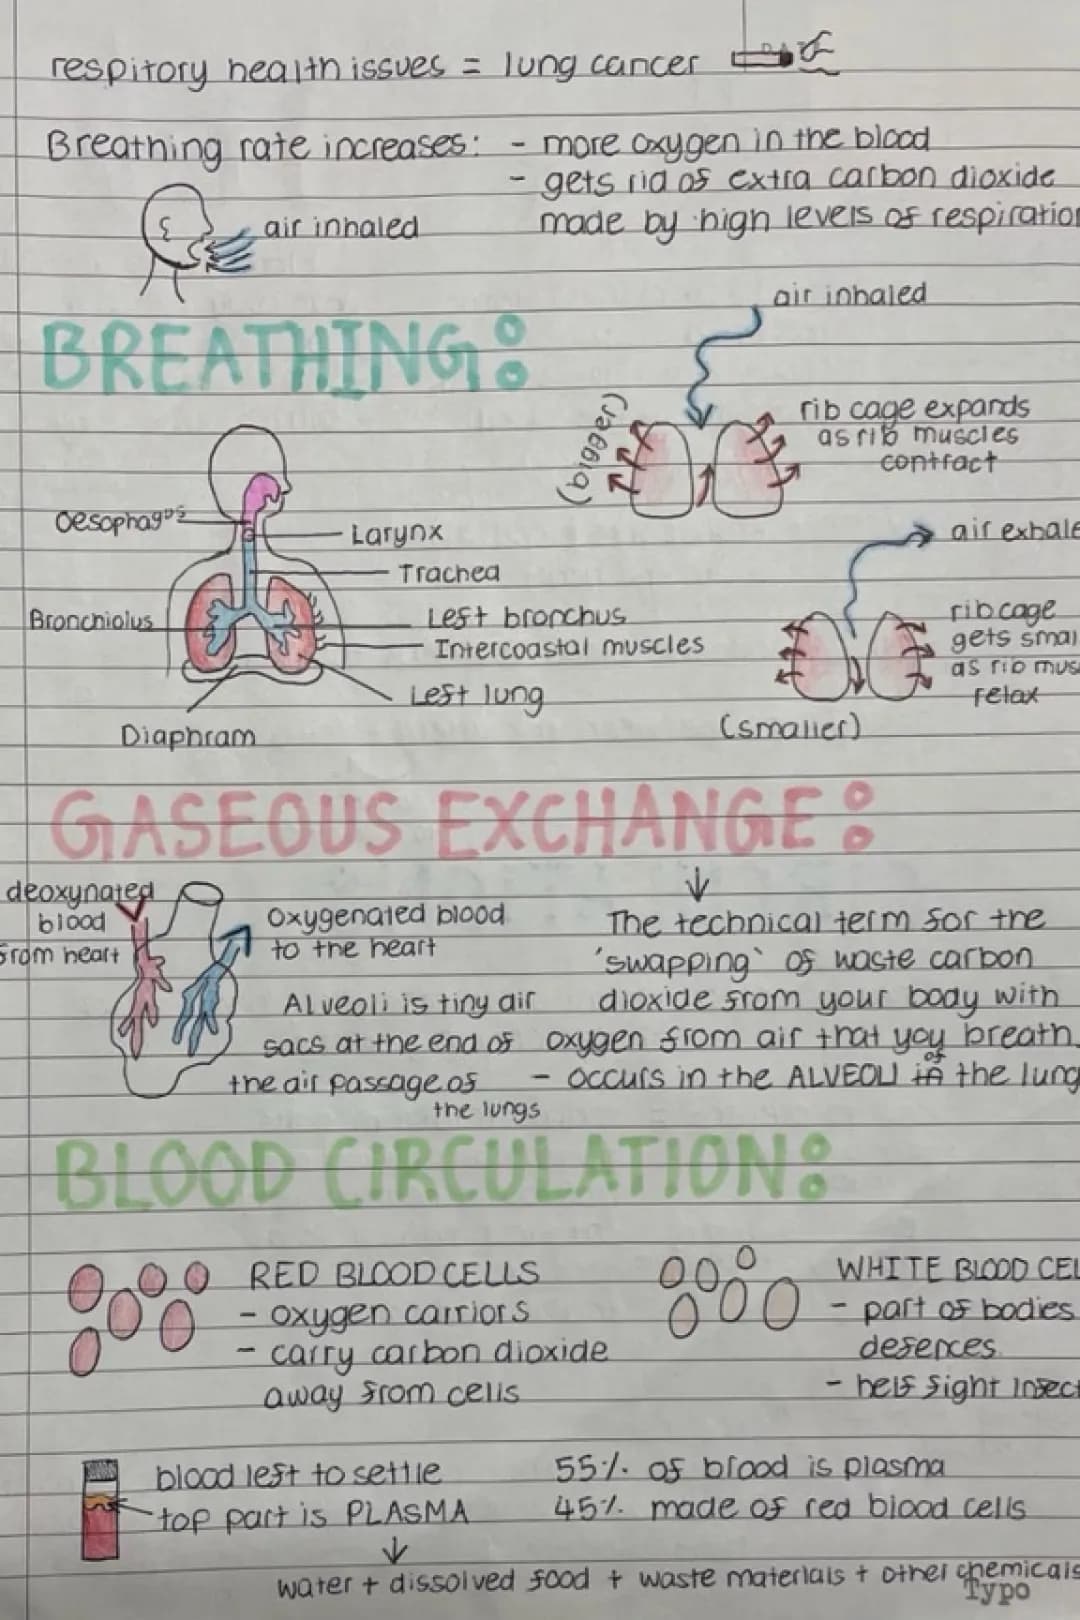 respitory health issues = lung cancer
Breathing rate increases: - more oxygen in the blood
- gets rid of extra carbon dioxide
made by high levels of respiration
air inhaled
air inhaled
BREATHING:
(bigger)
rib cage expands
as rib muscles
contract
Oesophagos
Larynx
Trachea
Bronchiolus
Left bronchus
Intercoastal muscles
Left lung
Diaphram
air exhale
rib cage
gets smal
as rib mus
relax
(smaller)
GASEOUS EXCHANGE:
deoxynated
blood
from heart
Oxygenated blood
to the heart
Alveoli is tiny air
sacs at the end of
the air passage of
the lungs
The technical term for the
'swapping' of waste carbon
dioxide from your body with
oxygen from air that you breath
- occurs in the ALVEOLI of the lung
BLOOD CIRCULATION:
RED BLOOD CELLS
- oxygen carriors
- carry carbon dioxide
away from cells
WHITE BLOOD CEL
- part of bodies
defences
- help fight infect
blood left to settle
top part is PLASMA
55% of blood is plasma
45% made of red blood cells
water + dissolved food + waste materials + other chemicals
Typo